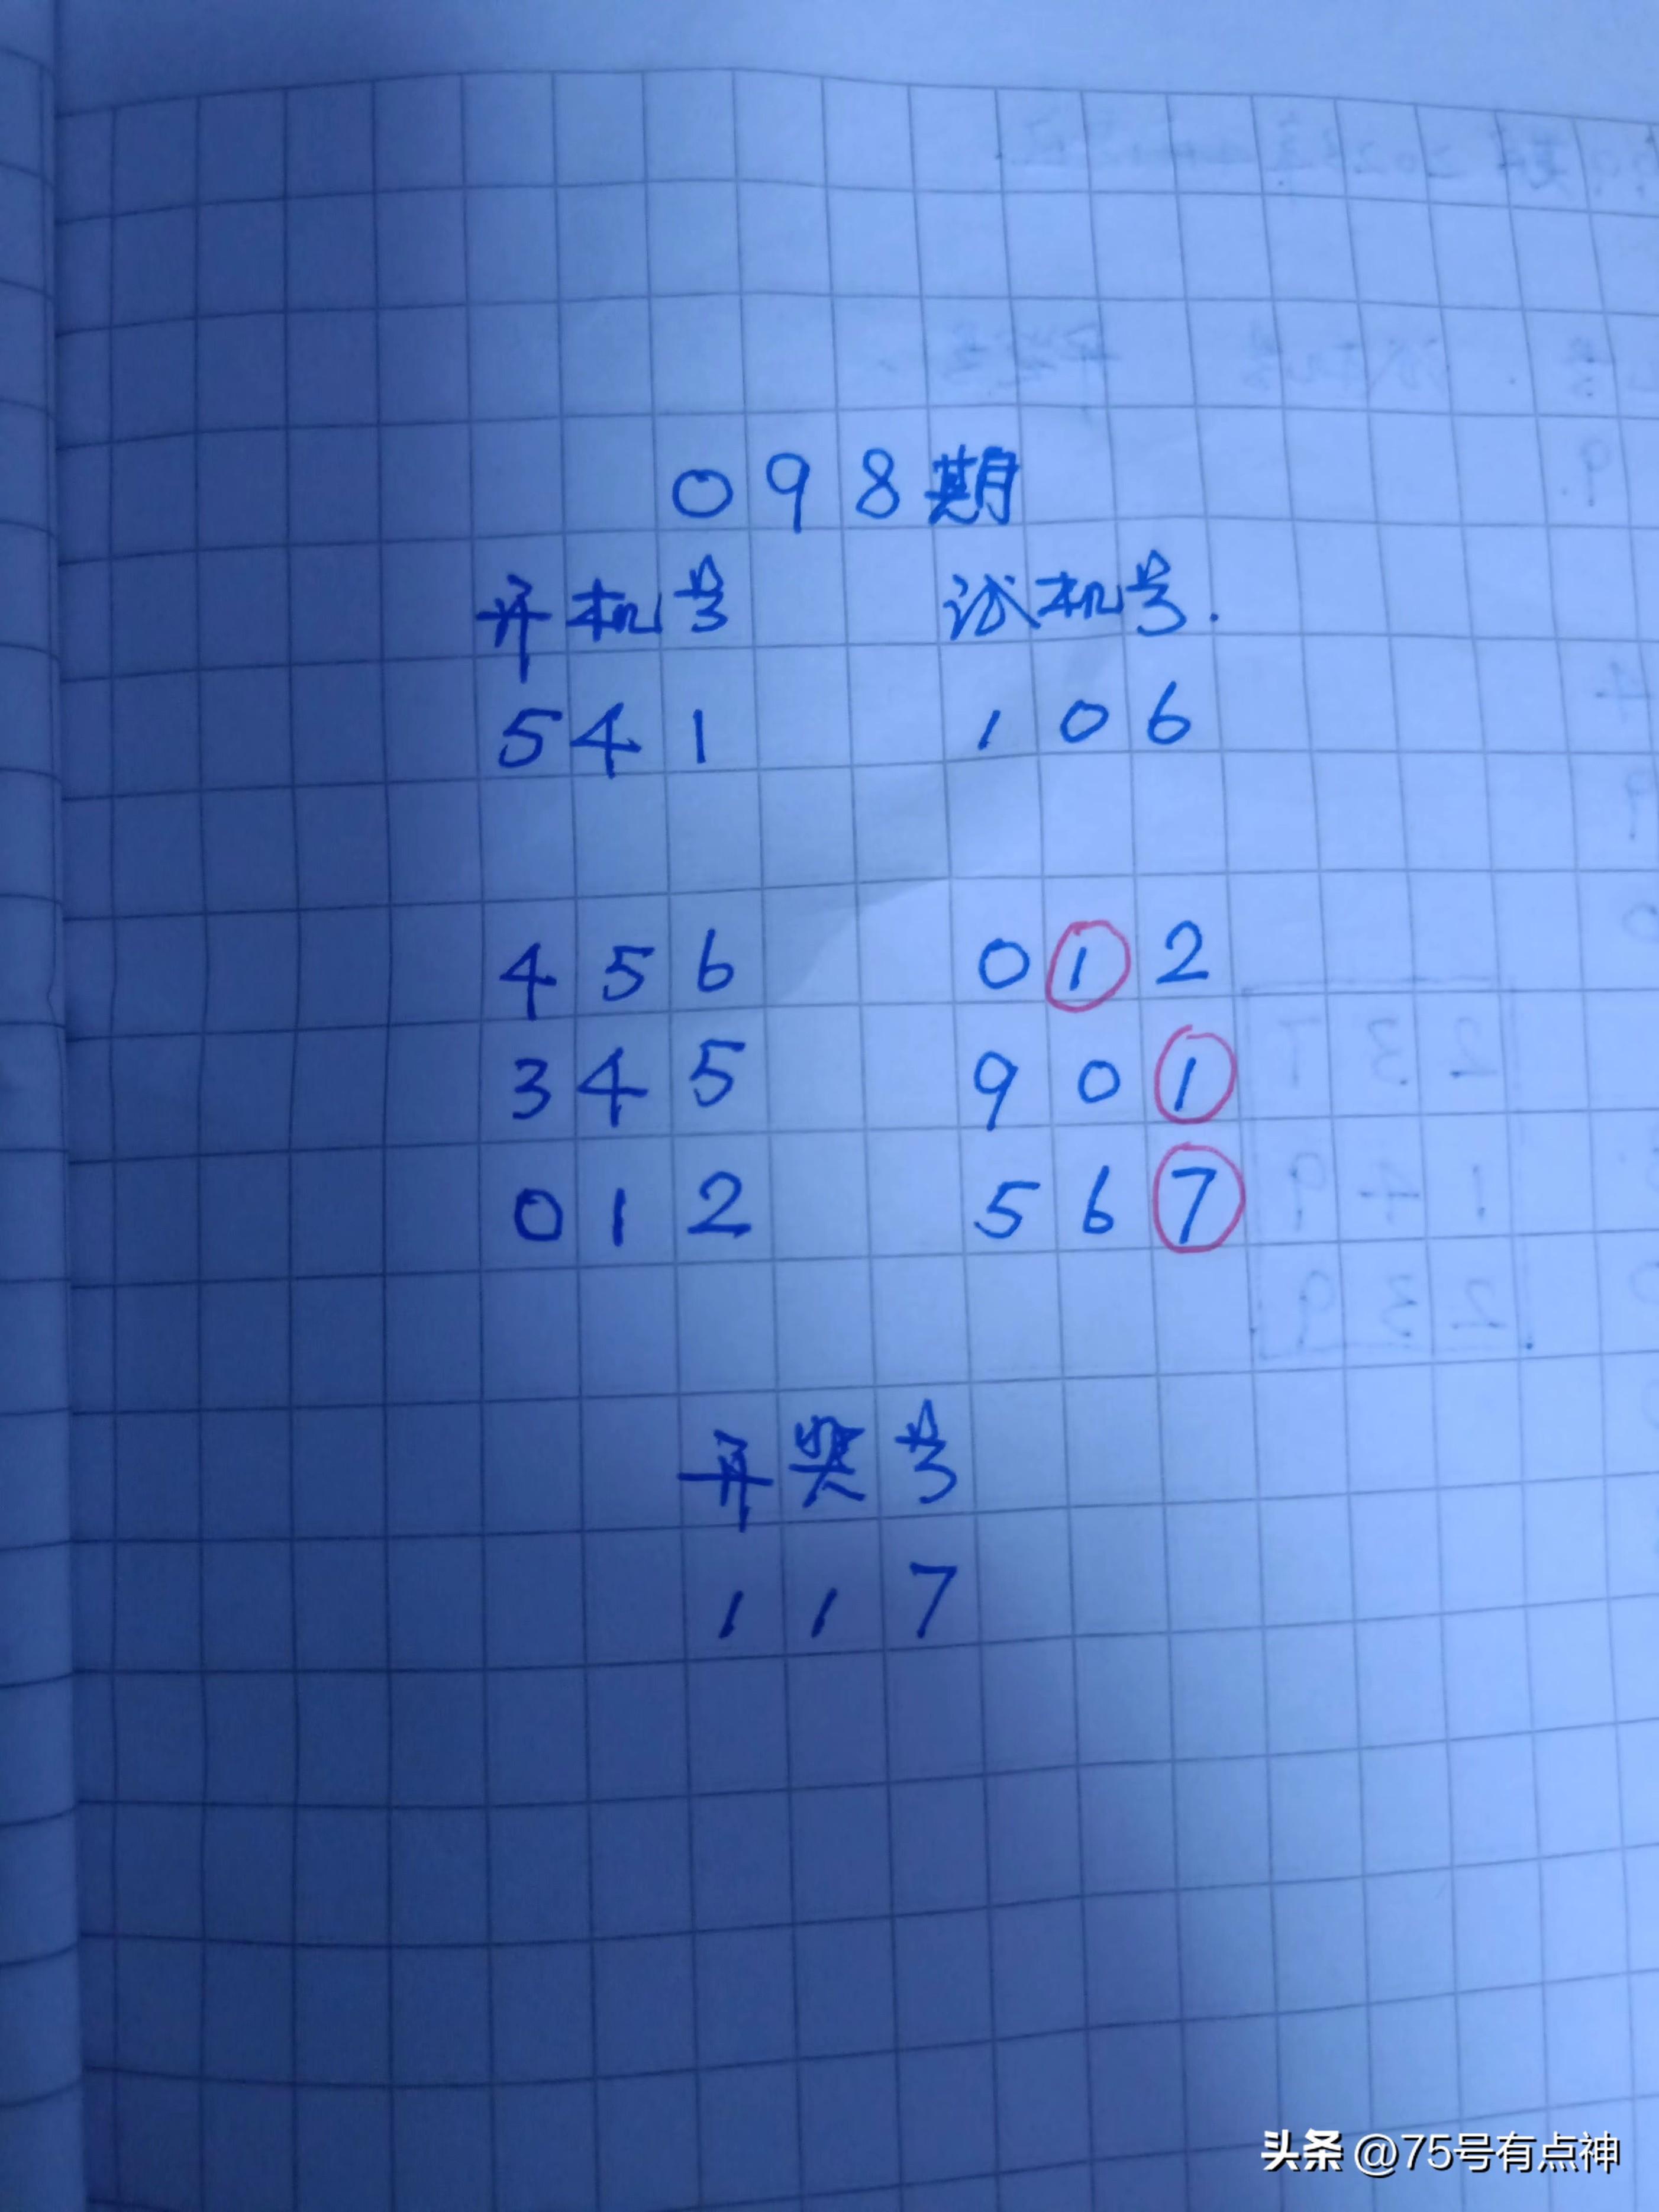 098期
开机号 试机号.
541 106
456 012
345 901
012 567
开奖号
117
头条 @75号有点神